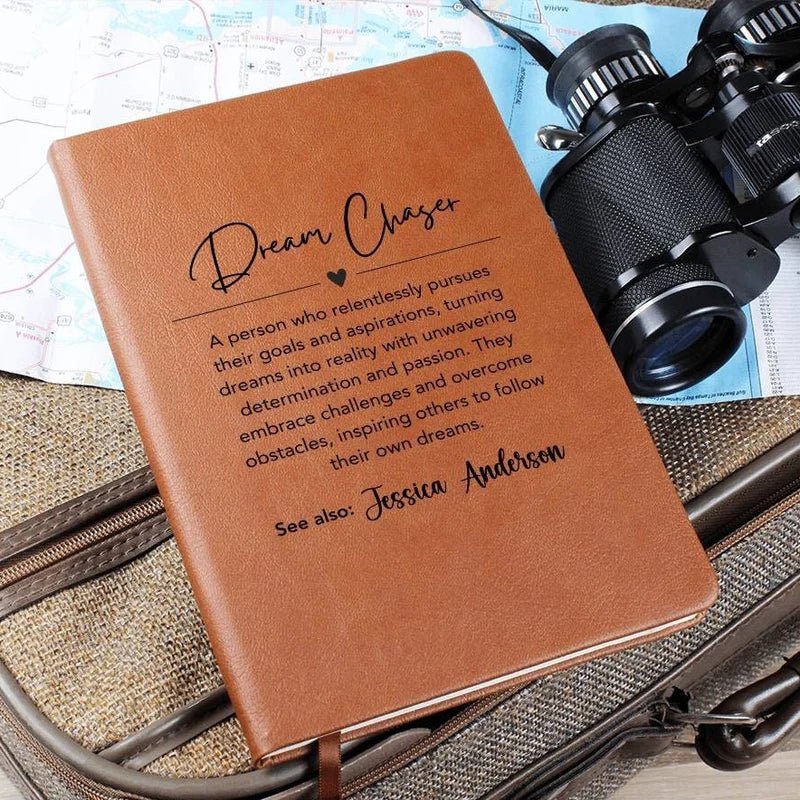 Dream Chaser
A person who relentlessly pursues
their goals and aspirations, turning
dreams into reality with unwavering
determination and passion. They
embrace challenges and overcome
obstacles, inspiring others to follow
their own dreams.
See also: Jessica Anderson
tasco